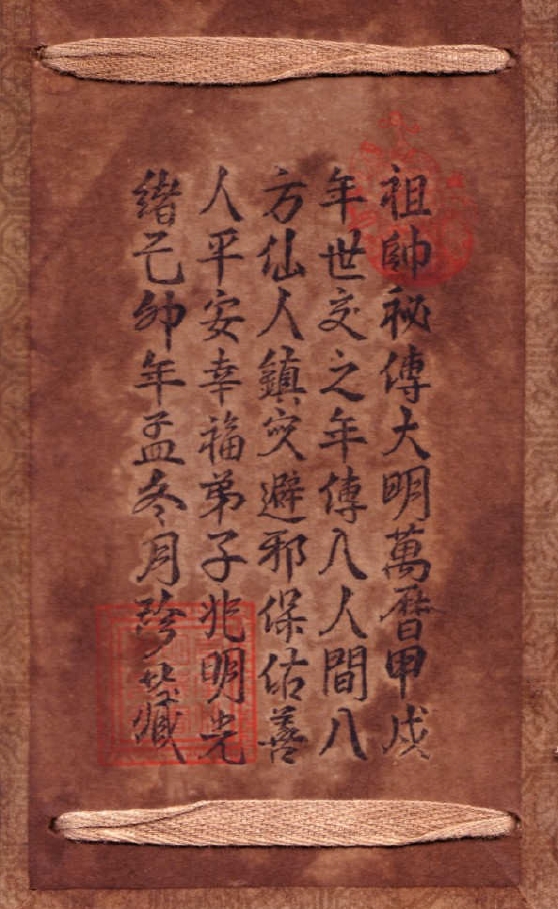 祖師秘傳大明萬曆甲戌
年世交之年傳入人間八
方仙人鎮灾避邪保佑善
人平安幸福弟子兆明光
緒己卯年孟冬月珍藏